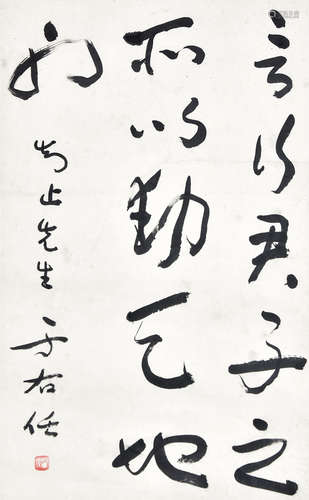 言行君子之
所以動天地
也
知止先生
于右任